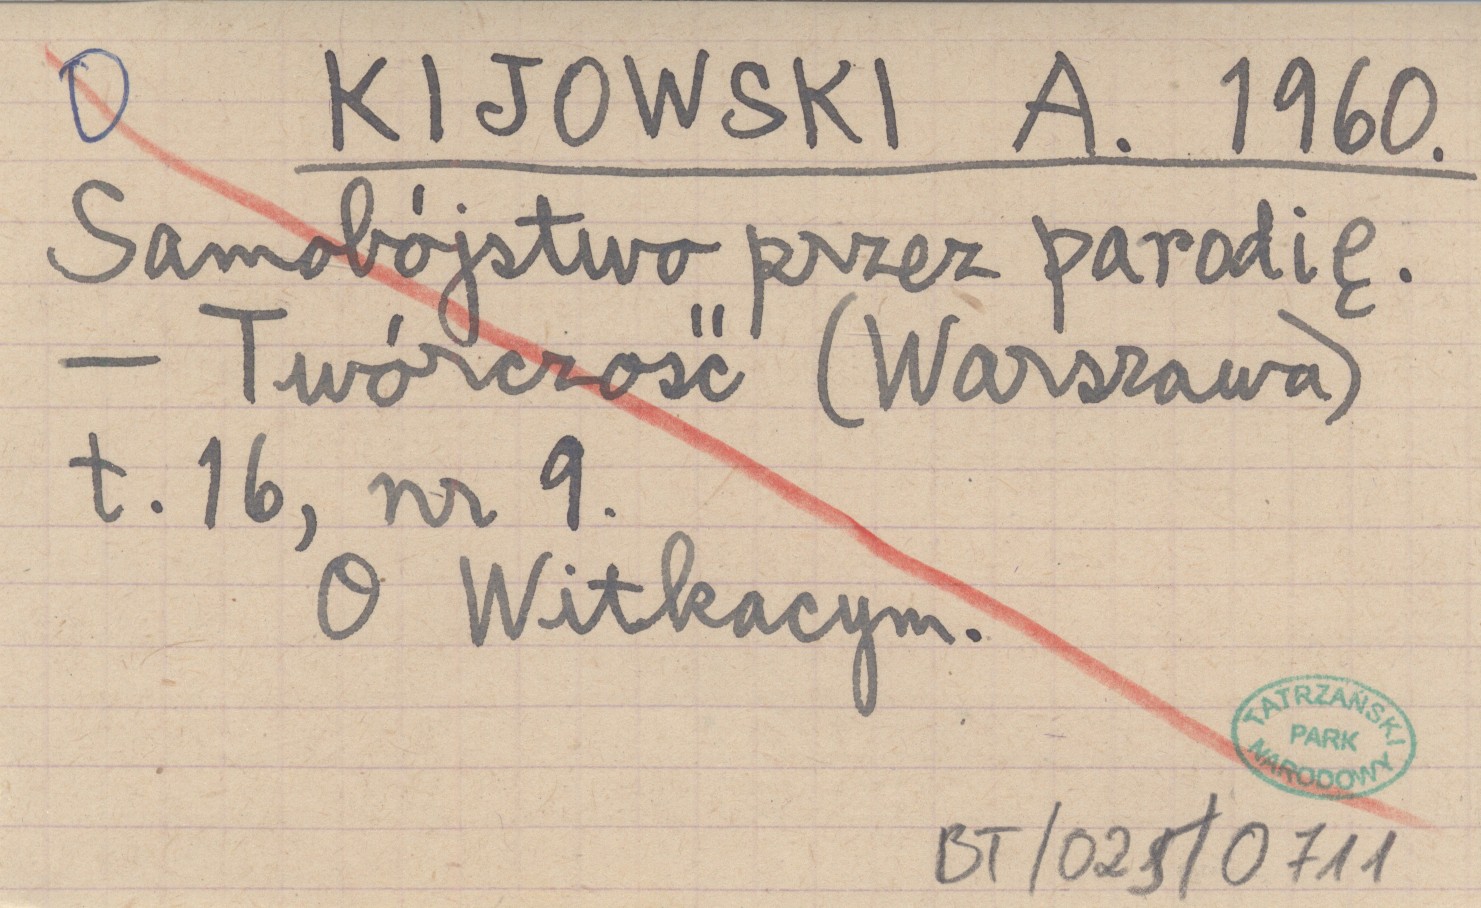 O KIJOWSKI A. 1960.
Samobójstwo przez parodię.
– "Twórczość" (Warszawa)
t. 16, nr 9.
O Witkacym.
TATRZAŃSKI
PARK
NARODOWY
BT/025/0711